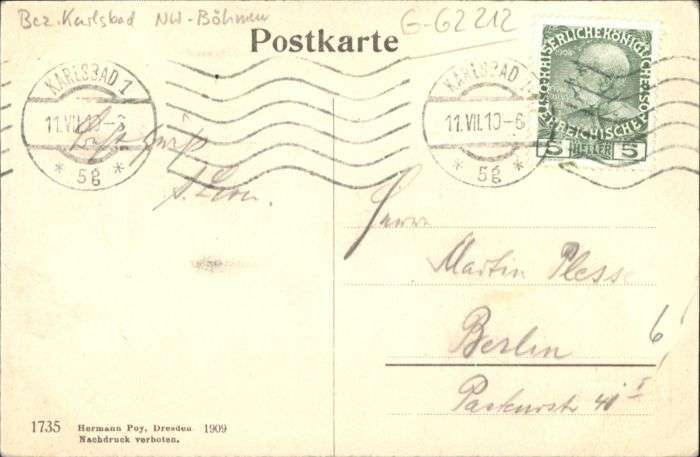 Bez. Karlsbad NW-Böhmen
G-G2212
Postkarte
KARLSBAD 1
11.VII.10-6
* 5g *
KARLSBAD 1
11.VII.10-6
* 5g *
KAISERLICHE KÖNIGLICHE ÖSTERREICHISCHE POST
5 HELLER 5
Herrn
Martin Plesse
Berlin 6
40 I
1735 Hermann Poy, Dresden 1909
Nachdruck verboten.